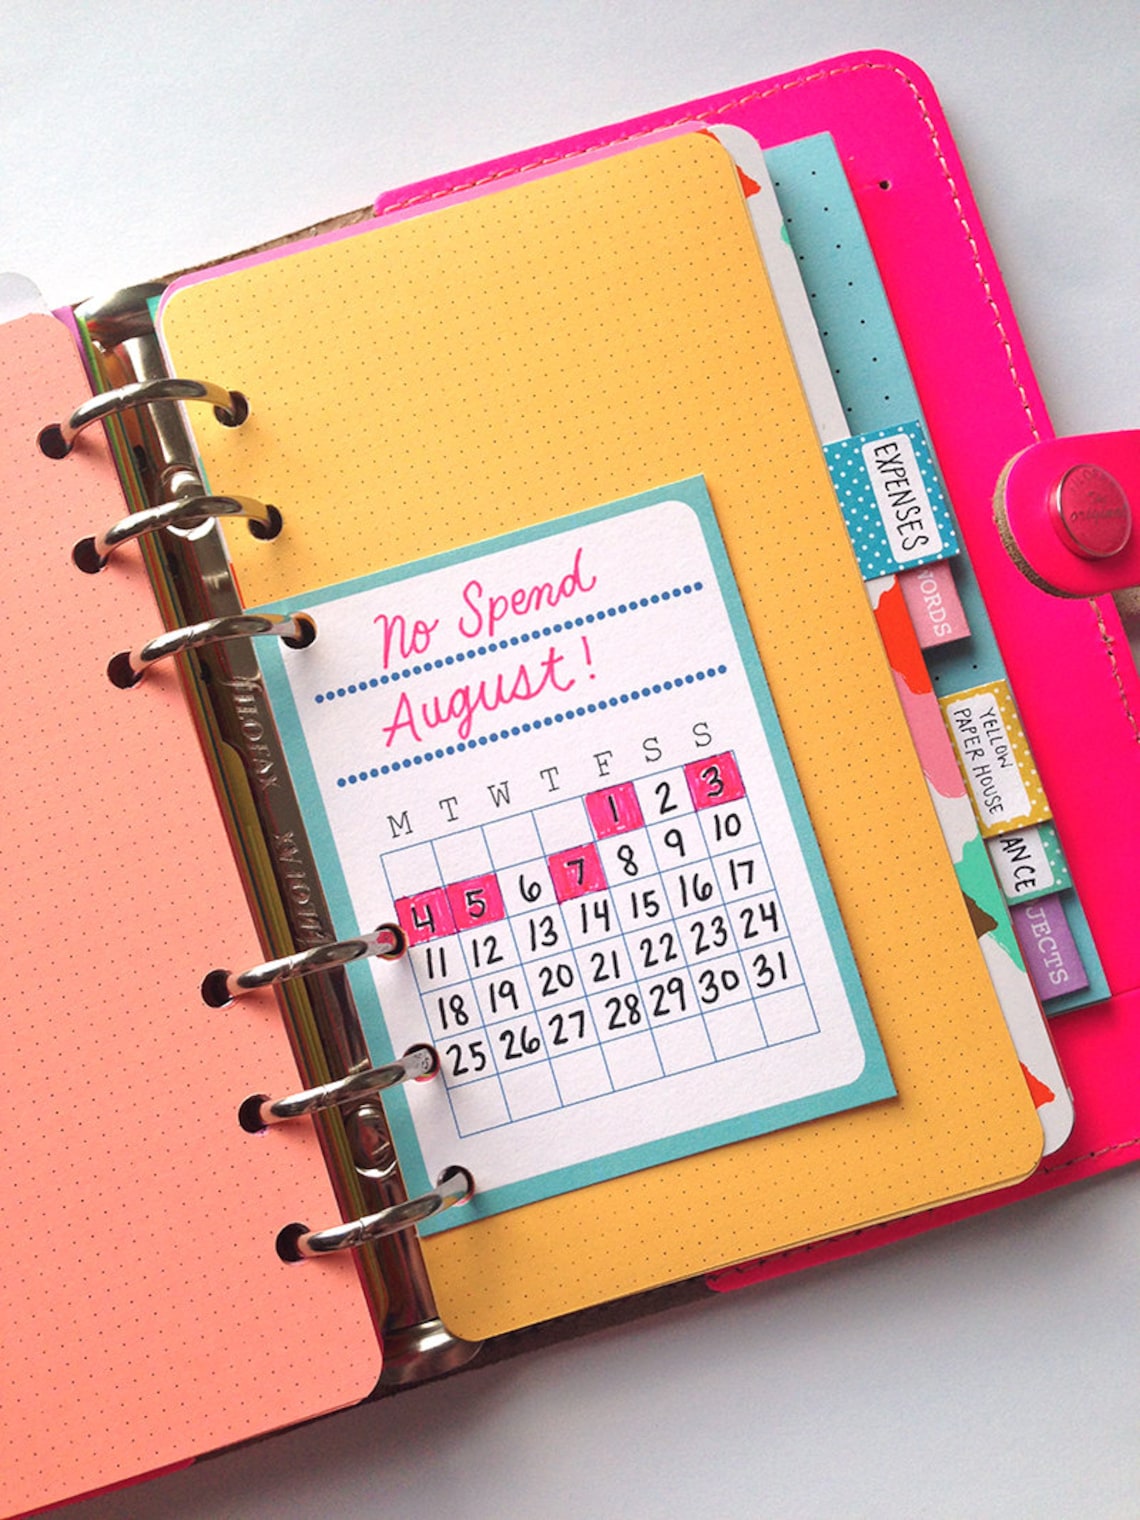 No Spend
August!
M T W T F S S
1 2 3
4 5 6 7 8 9 10
11 12 13 14 15 16 17
18 19 20 21 22 23 24
25 26 27 28 29 30 31
EXPENSES
WORDS
YELLOW
PAPER HOUSE
ANCE
JECTS
FILOFAX